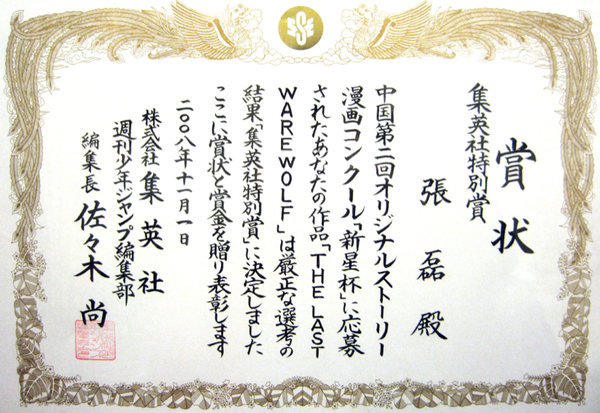 賞状
集英社特別賞
張磊殿
中国第二回オリジナルストーリー
漫画コンクール「新星杯」に応募
されたあなたの作品「THE LAST
WAREWOLF」は厳正な選考の
結果「集英社特別賞」に決定しました
ここに賞状と賞金を贈り表彰します
二〇〇八年十一月一日
株式会社 集英社
週刊少年ジャンプ編集部
編集長 佐々木 尚